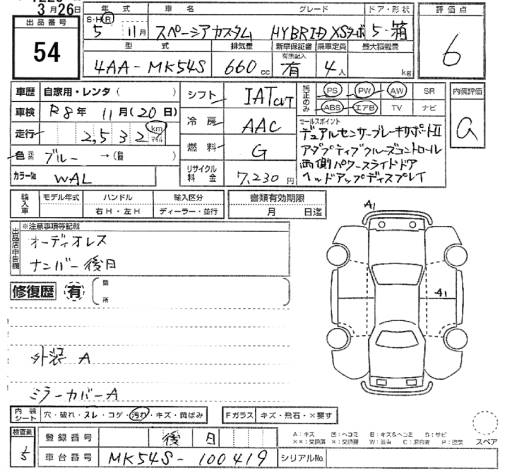 3月26日
出品番号 54
S・H・Ⓡ 年 車名 グレード ドア・形状
5 11月 スペーシアカスタム HYBRID XSターボ 5・箱
型式 排気量 新車保証書 乗車定員 最大積載量
4AA-MK54S 660cc 有 4人 kg
評価点
6
車歴 自家用・レンタ( )
車検 R8年 11月(20日)
走行 2,532 km マイル
色 ブルー →( )
カラーNo WAL
シフト IAT CVT
冷房 AAC
燃料 G
リサイクル料金 7,230円
純正のみ
PS PW AW SR
ABS エアB TV ナビ
内装評価
セールスポイント
デュアルセンサーブレーキサポートⅡ
アダプティブクルーズコントロール
両側パワースライドドア
ヘッドアップディスプレイ
輸入車 モデル年式 ハンドル 輸入区分 書類有効期限
右H・左H ディーラー・並行 月 日迄
※注意事項等記載
オーディオレス
ナンバー後日
修復歴 有 箇所
外装 A
ミラーカバーA
A1
A1
内装シート 穴・破れ・スレ・コゲ・汚れ・キズ・凹ばみ Fガラス キズ・飛石・×要す
登録番号 後日
車台番号 MK54S-100419 シリアルNo.
スペア